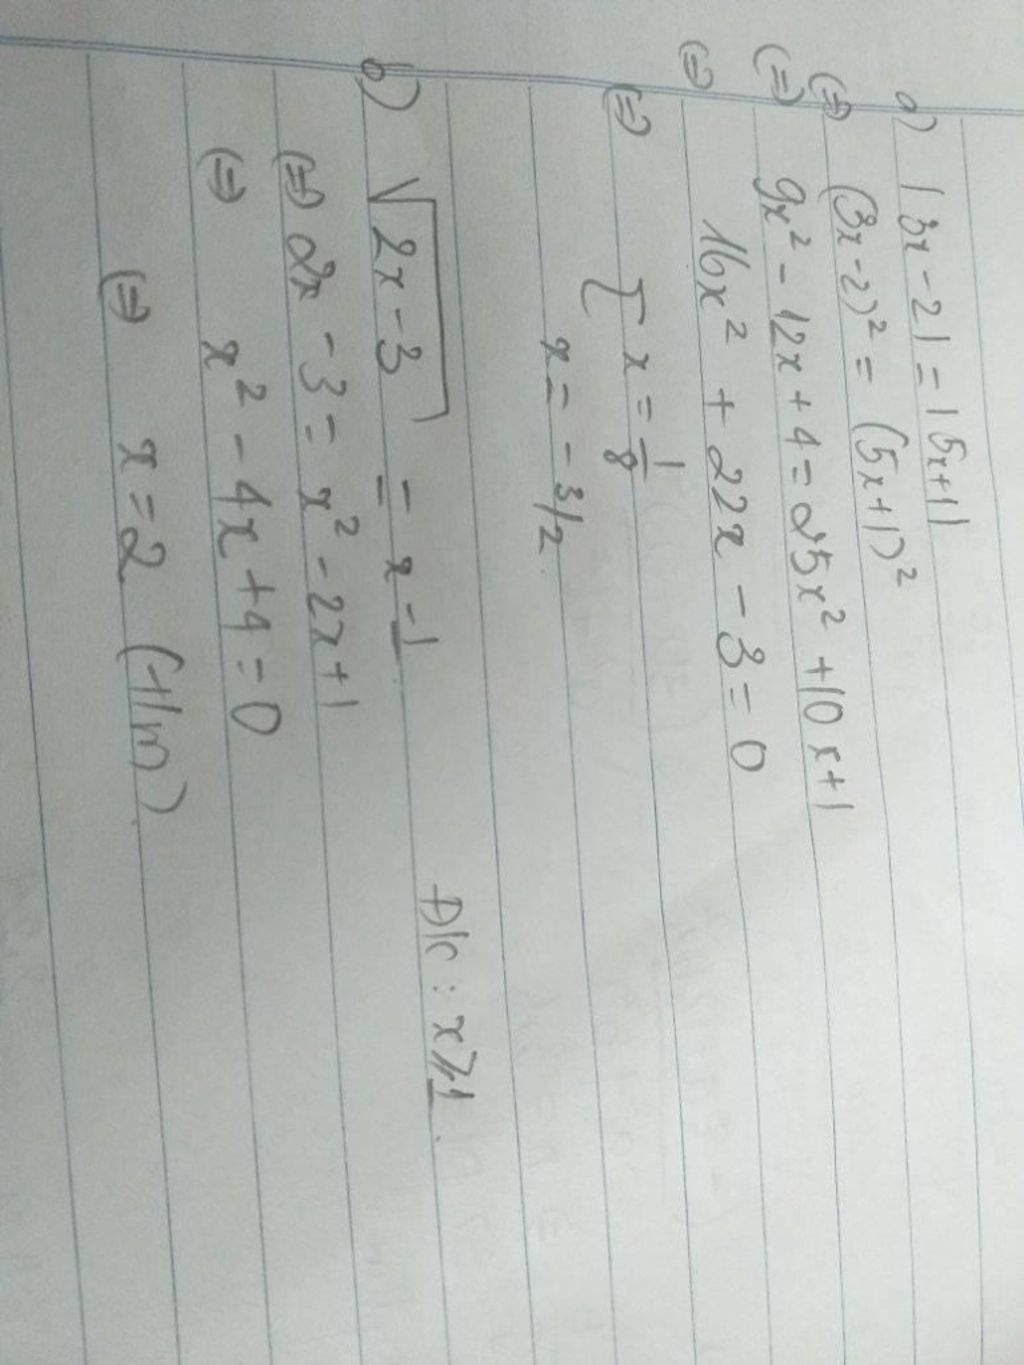 a) |3x-2|=|5x+1|
(=) (3x-2)² = (5x+1)²
(=) 9x² - 12x + 4 = 25x² + 10x + 1
(=) 16x² + 22x - 3 = 0
(=) [ x = 1/8
x = -3/2.
Đk: x ≥ 1.
b) √2x-3 = x-1
(=) 2x - 3 = x² - 2x + 1
(=) x² - 4x + 4 = 0
(=) x = 2 (t/m)